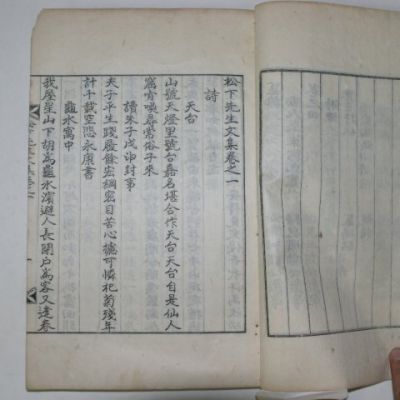 松下先生文集卷之一
詩
天台
山號天燈里號台嘉名堪合作天台天台自是仙人
窟肯嗤尋常俗子來
讀朱子戊申封事
夫子平生踐履餘宏綱密目苦心攄可憐杞菊殘年
計千載空悲永康書
龜水寓中
我屋星山下胡爲龜水濱避人長閉戶爲客又逢春